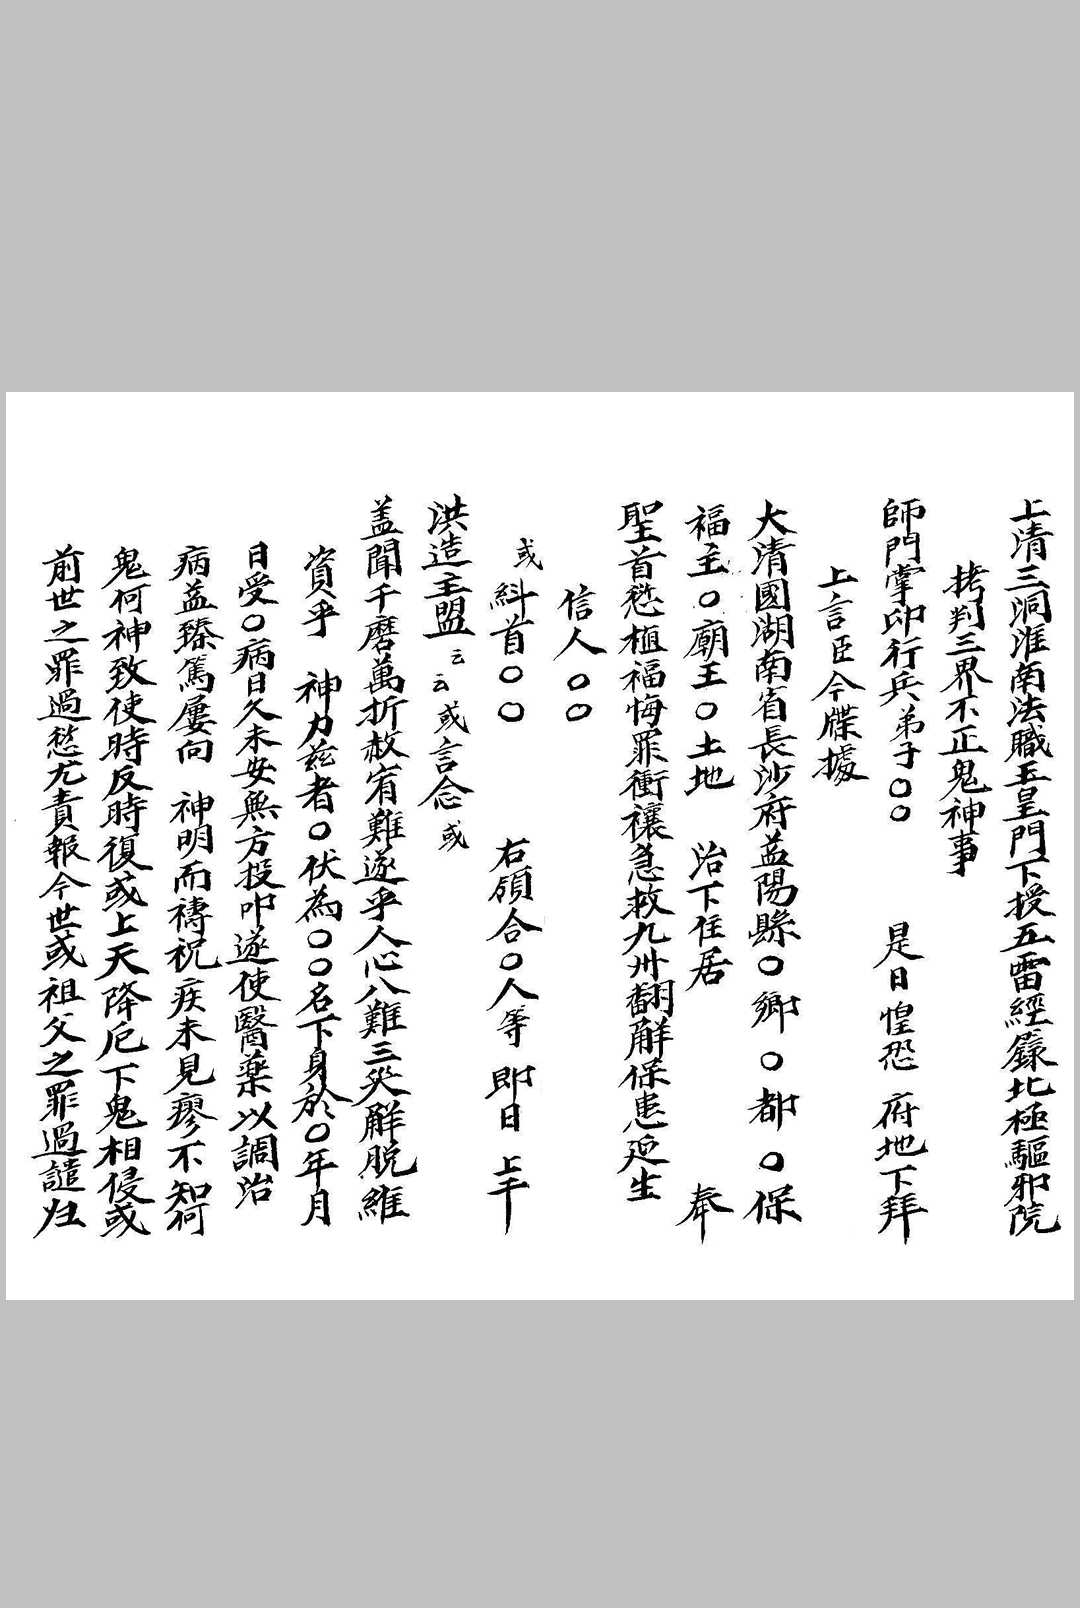 上清三洞淮南法職玉皇門下授五雷經籙北極驅邪院
拷判三界不正鬼神事
師門掌印行兵弟子〇〇 是日惶恐 府地下拜
上言臣今牒據
大清國湖南省長沙府益陽縣〇鄉〇都〇保
福主〇廟王〇土地 治下住居 奉
聖首愆植福悔罪衝禳急救九州翻解保患延生
信人〇〇
或 斜首〇〇 右領合〇人等 即日 上干
洪造主盟云云或言念或
盖聞千磨萬折赦宥難逐乎人心八難三災解脱維
資乎 神力兹者〇伏為〇〇名下身於〇年月
日受〇病日久未安無方投叩遂使醫藥以調治
病益臻篤屢向 神明而禱祝疾未見瘳不知何
鬼何神致使時反時復或上天降厄下鬼相侵或
前世之罪過愁尤責報今世或祖父之罪過譴归